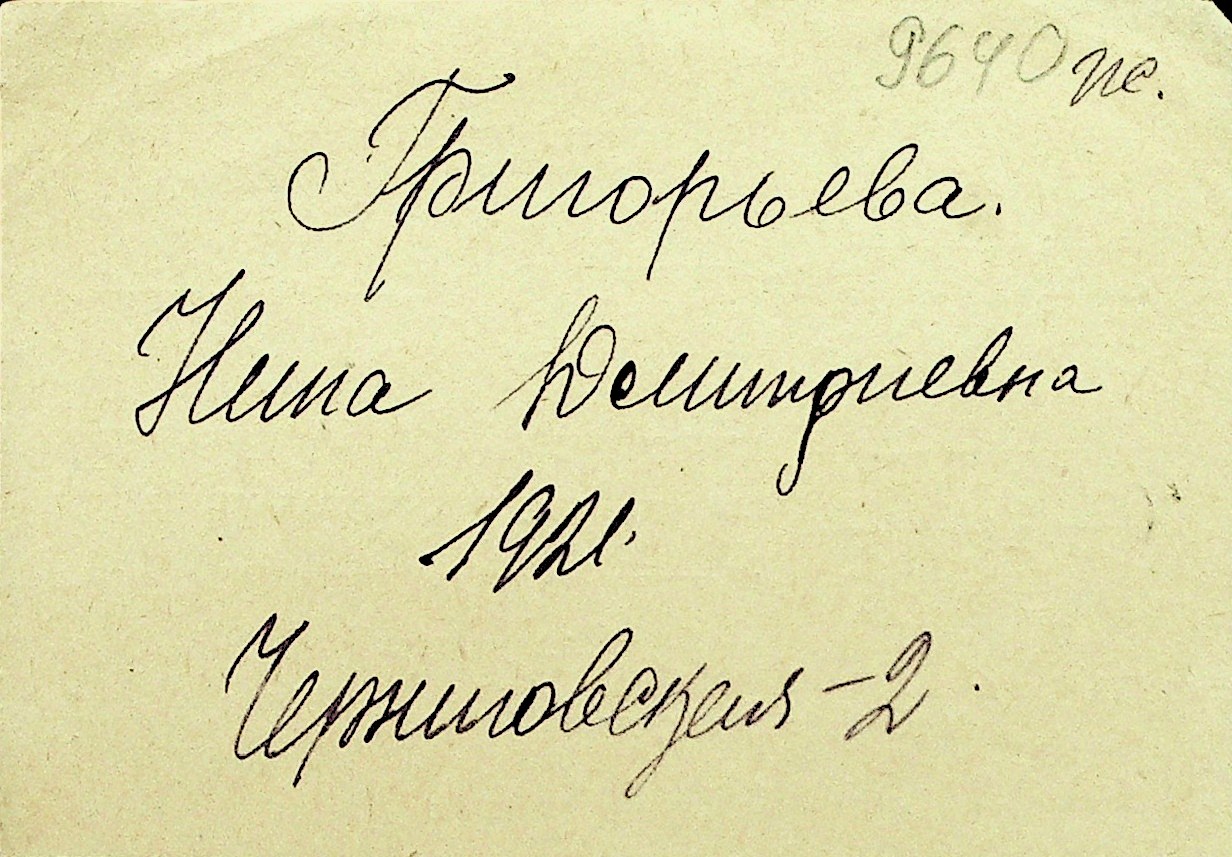 9640 пс.
Григорьева.
Нина Дмитриевна
1921.
Черниговская - 2.